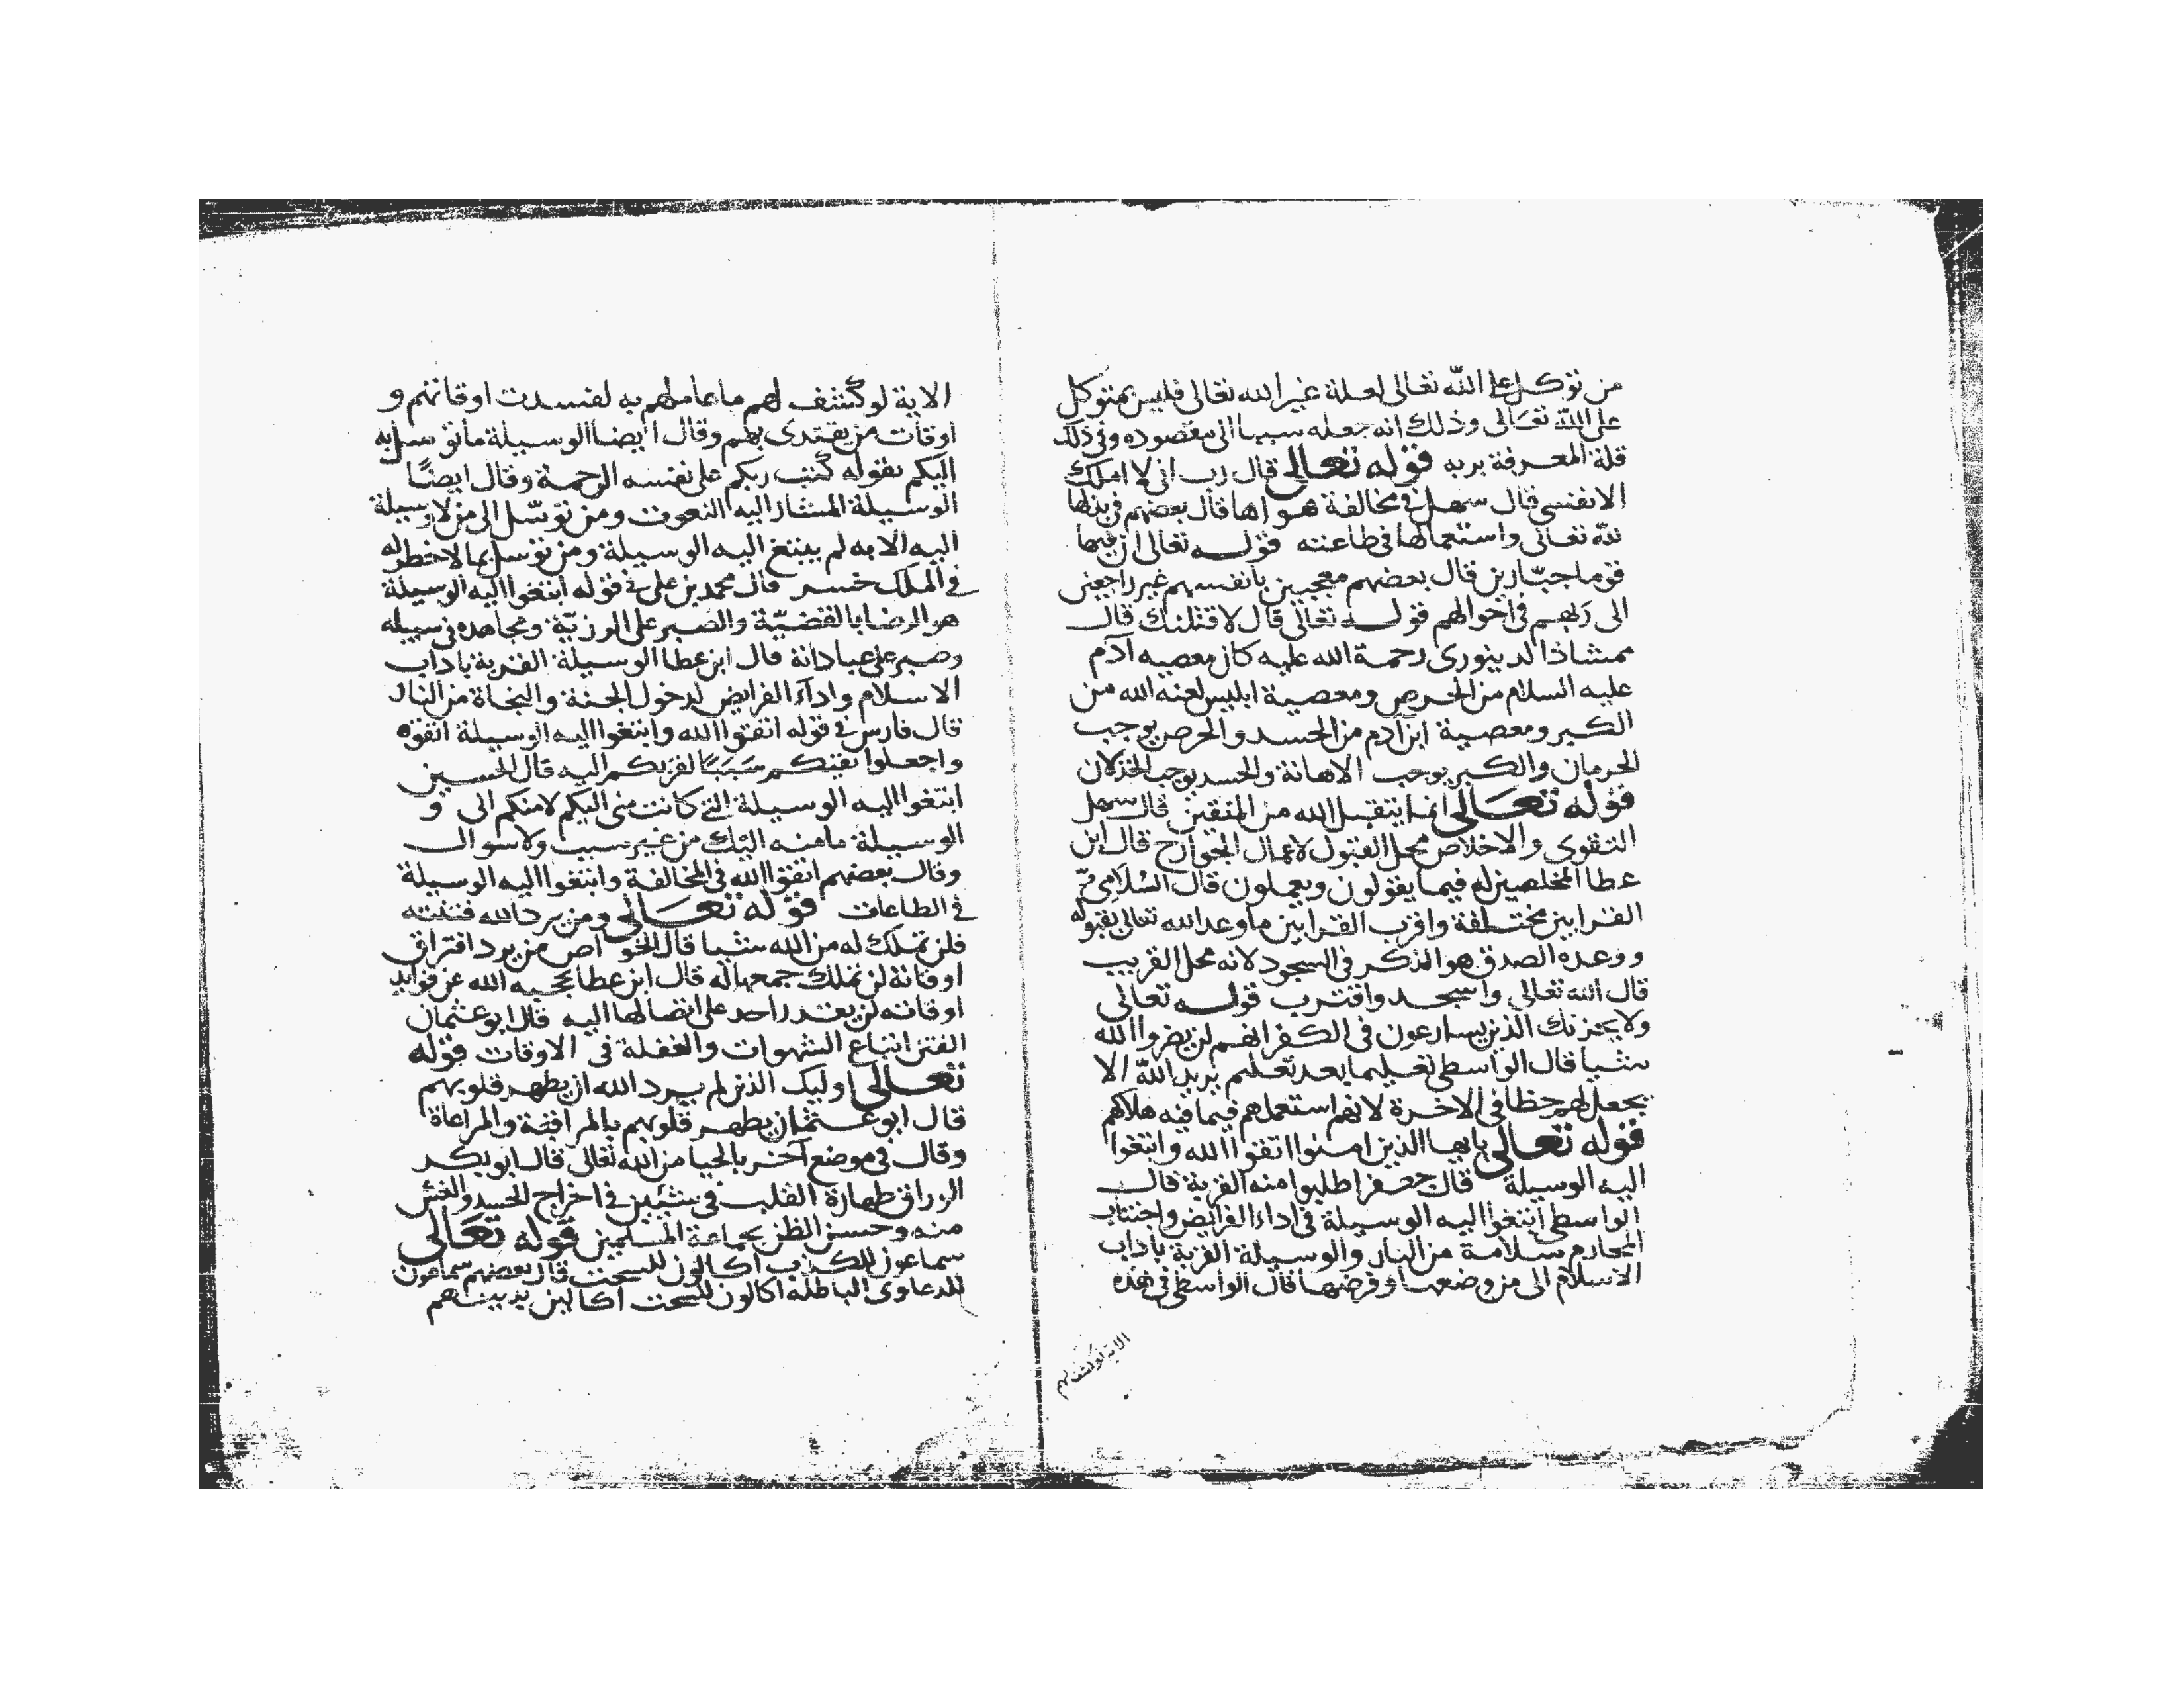 من توكل على الله تعالى لعلة غير الله تعالى فليس بمتوكل
على الله تعالى وذلك انه جعله سببا الى مقصوده وفى ذلك
قلة المعرفة بربه قوله تعالى قال رب انى لا املك
الا نفسى قال سهل فى مخالفة هواها قال بعضهم فى بذلها
لله تعالى واستعمالها فى طاعته قوله تعالى ان فيها
قوما جبّارين قال بعضهم معجبين بانفسهم غير راجعين
الى ربهم فى احوالهم قوله تعالى قال لاقتلنك قال
ممشاذ الدينورى رحمة الله عليه كان معصيه آدم
عليه السلام من الحرص ومعصية ابليس لعنه الله من
الكبر ومعصية ابن آدم من الحسد والحرص يوجب
الحرمان والكبر يوجب الاهانة والحسد يوجب الخذلان
قوله تعالى انما يتقبل الله من المتقين قال سهل
التقوى والاخلاص محل القبول لاعمال الجوارح قال ابن
عطا المخلصين له فيما يقولون ويعملون قال السُلامى
القرابين مختلفة واقرب القرابين ما وعد الله تعالى بقبوله
ووعده الصدق هو الذكر فى السجود لانه محل القريب
قال الله تعالى واسجد واقترب قوله تعالى
ولا يحزنك الذين يسارعون فى الكفر انهم لن يضروا الله
شيا قال الواسطى تعليما بعد تعليم يريد الله الا
يجعل لهم حظا فى الاخرة لانهم استعملهم فيما فيه هلاكهم
قوله تعالى يايها الذين امنوا اتقوا الله وابتغوا
اليه الوسيلة قال جعفر اطلبوا منه القربة قال
الواسطى ابتغوا اليه الوسيلة فى اداء الفرايض واجتناب
المحارم سلامة من النار والوسيلة القربة باداب
الاسلام الى من وضعها وفرضها قال الواسطى فى هذه
الاية لو كشف لهم
الاية لو كشف لهم ما عاملهم به لفسدت اوقاتهم و
اوقات من يقتدى بهم وقال ايضا الوسيلة ما توسل به
اليكم بقوله كتب ربكم على نفسه الرحمة وقال ايضًا
الوسيلة المشار اليه النعوت ومن توسّل الى من لا وسيلة
اليه الا به لم يبتغ اليه الوسيلة ومن توسل بما لا خطر له
فى الملك خسر قال محمد بن على فى قوله ابتغوا اليه الوسيلة
هو الرضا بالقضيّة والصبر على الرزيّة ومجاهده فى سبيله
وصبر على عباداته قال ابن عطا الوسيلة القربة باداب
الاسلام واداء الفرايض لدخول الجنة والنجاة من النار
قال فارس فى قوله اتقوا الله وابتغوا اليه الوسيلة اتقوه
واجعلوا تقيتكم سَبَبًا لقربكم اليه قال الحسين
ابتغوا اليه الوسيلة التى كانت منى اليكم لا منكم الى و
الوسيلة ما منه اليك من غير سبب ولا سوال
وقال بعضهم اتقوا الله فى المخالفة وابتغوا اليه الوسيلة
فى الطاعات قوله تعالى ومن يرد الله فتنته
فلن تملك له من الله شيا قال الخواص من يرد افتراق
اوقاته لن تملك جمعها له قال ابن عطا يحجبه الله عن فوايد
اوقاته لن يقدر احد على اتصالها اليه قال ابو عثمان
الفتن اتباع الشهوات والغفلة فى الاوقات قوله
تعالى اوليك الذين لم يرد الله ان يطهر قلوبهم
قال ابو عثمان يطهر قلوبهم بالمراقبة والمراعاة
وقال فى موضع آخر بالحيا من الله تعالى قال ابو بكر
الوراق طهارة القلب فى شيئين فى اخراج الحسد والغش
منه وحسن الظن بجماعة المسلمين قوله تعَالى
سماعون للكذب اكالون للسحت قال بعضهم سماعون
للدعاوى الباطلة اكالون للسحت اكالين بدينهم